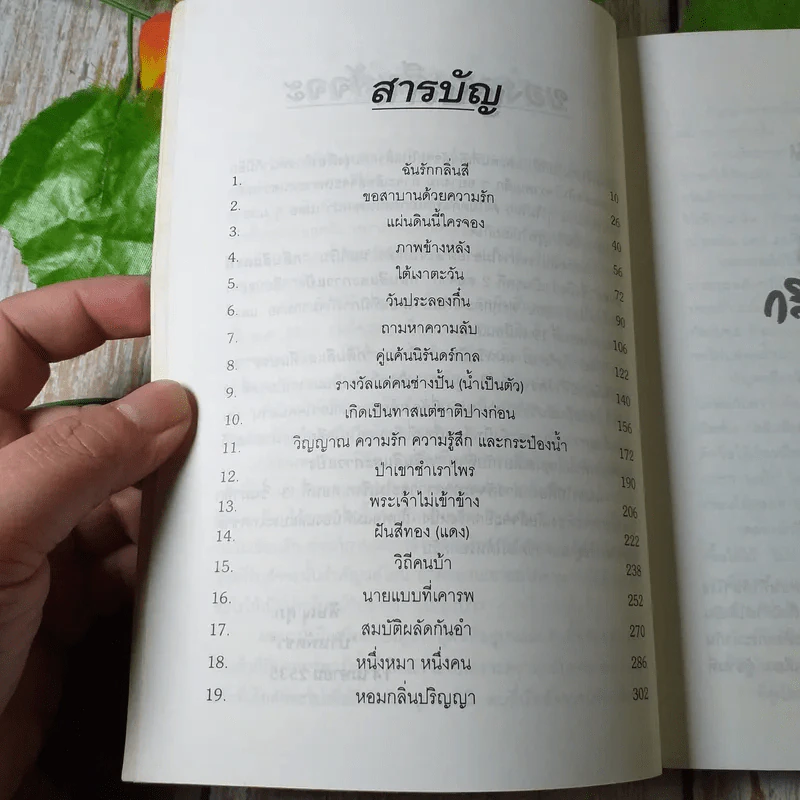 สารบัญ
1. ฉันรักกลิ่นสี 10
2. ขอสาบานด้วยความรัก 26
3. แผ่นดินนี้ใครจอง 40
4. ภาพข้างหลัง 56
5. ใต้เงาตะวัน 72
6. วันประลองกึ๋น 90
7. ถามหาความลับ 106
8. คู่แค้นนิรันดร์กาล 122
9. รางวัลแด่คนช่างปั้น (น้ำเป็นตัว) 140
10. เกิดเป็นทาสแต่ชาติปางก่อน 156
11. วิญญาณ ความรัก ความรู้สึก และกระป๋องน้ำ 172
12. ป่าเขาซำเราไพร 190
13. พระเจ้าไม่เข้าข้าง 206
14. ฝันสีทอง (แดง) 222
15. วิถีคนบ้า 238
16. นายแบบที่เคารพ 252
17. สมบัติผลัดกันอำ 270
18. หนึ่งหมา หนึ่งคน 286
19. หอมกลิ่นปริญญา 302